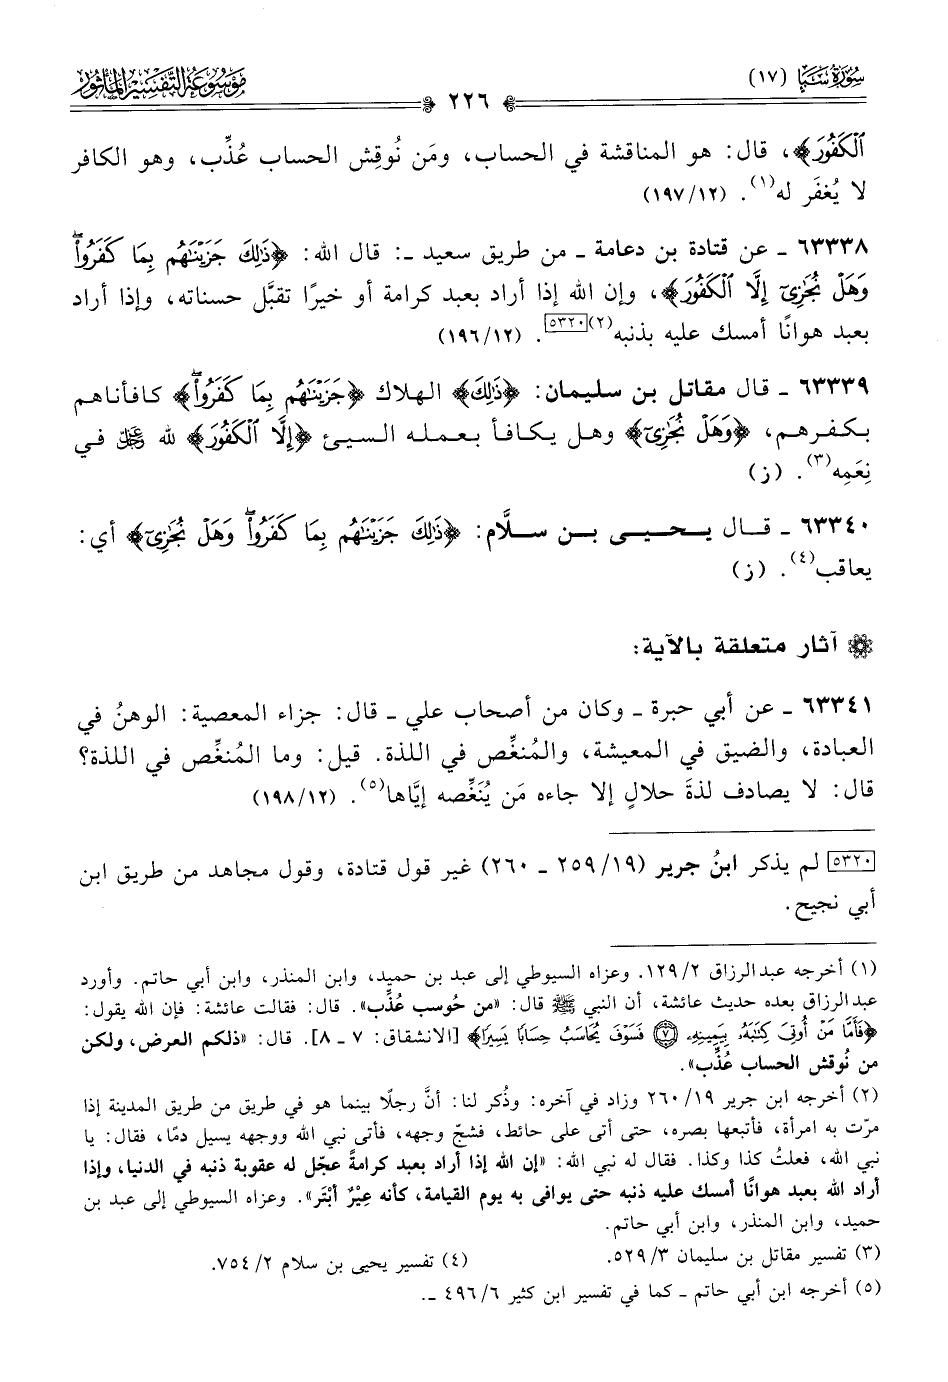 سورة سبأ (١٧)
موسوعة التفسير المأثور
٢٢٦
ٱلْكَفُورَ﴾، قال: هو المناقشة في الحساب، ومَن نُوقِش الحساب عُذِّب، وهو الكافر
لا يُغفَر له(١). (١٩٧/١٢)
٦٣٣٣٨ ـ عن قتادة بن دعامة ـ من طريق سعيد ـ: قال الله: ﴿ذَٰلِكَ جَزَيْنَٰهُم بِمَا كَفَرُوا۟ۖ
وَهَلْ نُجَٰزِىٓ إِلَّا ٱلْكَفُورَ﴾، وإن الله إذا أراد بعبد كرامة أو خيرًا تقبَّل حسناته، وإذا أراد
بعبد هوانًا أمسك عليه بذنبه(٢)[٥٣٢٠]. (١٩٦/١٢)
٦٣٣٣٩ ـ قال مقاتل بن سليمان: ﴿ذَٰلِكَ﴾ الهلاك ﴿جَزَيْنَٰهُم بِمَا كَفَرُوا۟ۖ﴾ كافأناهم
بكفرهم، ﴿وَهَلْ نُجَٰزِىٓ﴾ وهل يكافأ بعمله السيئ ﴿إِلَّا ٱلْكَفُورَ﴾ لله ﷿ في
نِعَمِه(٣). (ز)
٦٣٣٤٠ ـ قال يحيى بن سلَّام: ﴿ذَٰلِكَ جَزَيْنَٰهُم بِمَا كَفَرُوا۟ۖ وَهَلْ نُجَٰزِىٓ﴾ أي:
يعاقب(٤). (ز)
آثار متعلقة بالآية:
٦٣٣٤١ ـ عن أبي حبرة ـ وكان من أصحاب علي ـ قال: جزاء المعصية: الوهنُ في
العبادة، والضيق في المعيشة، والمُنغِّص في اللذة. قيل: وما المُنغِّص في اللذة؟
قال: لا يصادف لذةَ حلالٍ إلا جاءه مَن يُنَغِّصه إيَّاها(٥). (١٩٨/١٢)
[٥٣٢٠] لم يذكر ابنُ جرير (١٩/ ٢٥٩ ـ ٢٦٠) غير قول قتادة، وقول مجاهد من طريق ابن
أبي نجيح.
(١) أخرجه عبد الرزاق ٢/ ١٢٩. وعزاه السيوطي إلى عبد بن حميد، وابن المنذر، وابن أبي حاتم. وأورد
عبد الرزاق بعده حديث عائشة، أن النبي ﷺ قال: «من حُوسب عُذِّب». قال: فقالت عائشة: فإن الله يقول:
﴿فَأَمَّا مَنْ أُوتِىَ كِتَٰبَهُۥ بِيَمِينِهِۦ ٧ فَسَوْفَ يُحَاسَبُ حِسَابًا يَسِيرًا﴾ [الانشقاق: ٧ ـ ٨]. قال: «ذلكم العرض، ولكن
من نُوقش الحساب عُذِّب».
(٢) أخرجه ابن جرير ١٩/ ٢٦٠ وزاد في آخره: وذُكر لنا: أنَّ رجلًا بينما هو في طريق من طريق المدينة إذا
مرّت به امرأة، فأتبعها بصره، حتى أتى على حائط، فشجّ وجهه، فأتى نبي الله ووجهه يسيل دمًا، فقال: يا
نبي الله، فعلتُ كذا وكذا. فقال له نبي الله: «إن الله إذا أراد بعبد كرامةً عجّل له عقوبة ذنبه في الدنيا، وإذا
أراد الله بعبد هوانًا أمسك عليه ذنبه حتى يوافى به يوم القيامة، كأنه عِيْرٌ أبْتَر». وعزاه السيوطي إلى عبد بن
حميد، وابن المنذر، وابن أبي حاتم.
(٣) تفسير مقاتل بن سليمان ٣/ ٥٢٩.
(٤) تفسير يحيى بن سلام ٢/ ٧٥٤.
(٥) أخرجه ابن أبي حاتم ـ كما في تفسير ابن كثير ٦/ ٤٩٦ ـ.